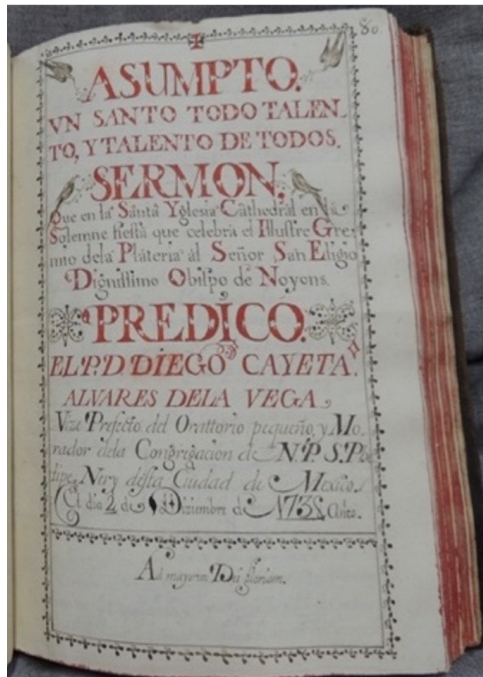 80
ASUMPTO.
VN SANTO TODO TALEN-
TO, Y TALENTO DE TODOS.
SERMON.
Que en la Santa Yglesia Cathedral en la
Solemne fiesta que celebra el Illustre Gre-
mio dela Plateria al Señor San Eligio
Dignissimo Obispo de Noyons.
PREDICO.
EL P.D. DIEGO CAYETA.
ALVARES DELA VEGA.
Vize Prefecto del Orattorio pequeño, y Mo-
rador dela Congrigacion de N.P.S.
Nery desta Ciudad de Mexico.
El dia 2 de Diziembre de Años.
Ad mayorem Dei gloriam.